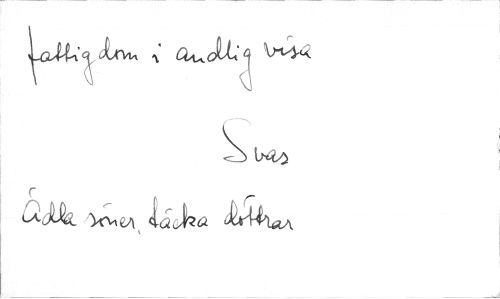 fattigdom i andlig visa
Svas
Ädla söner, täcka döttrar